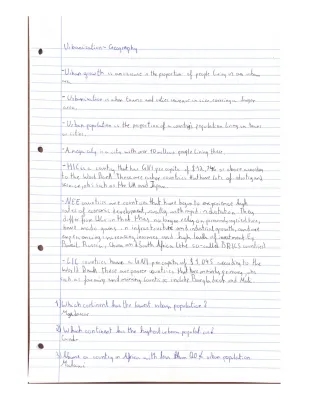 Urbanisation - Geography
- Urban growth is an increase in the proportion of people living in an urban
area.
- Urbanisation is when towns and cities increase in size covering a larger
area.
- Urban population is the proportion of a country's population living in towns
or cities.
- A mega city is a city with over 10 million people living there.
- HIC is a country that has GNI per capita of $12,746 or above according
to the World Bank. These are richer countries that have lots of
service jobs such as the UK and Japan.
- NEE countries are countries that have begun to experience high
rates of economic development, usually with rapid industrialisation. They
differ from LICs in that they no longer rely on primary industries,
have made gains in infrastructure and industrial growth, and are
experiencing increasing incomes and high levels of investment Eg
Brazil, Russia, China and South Africa (the so-called BRICS countries)
- LIC countries have a GNI per capita of $1,045 according to the
World Bank. These are poorer countries that has mainly primary jobs
such as farming and mining Countries include Bangladesh and Mali
1) Which continent has the lowest urban population?
2) Which continent has the highest urban population?
3) Name a country in Africa with less than 40% urban population